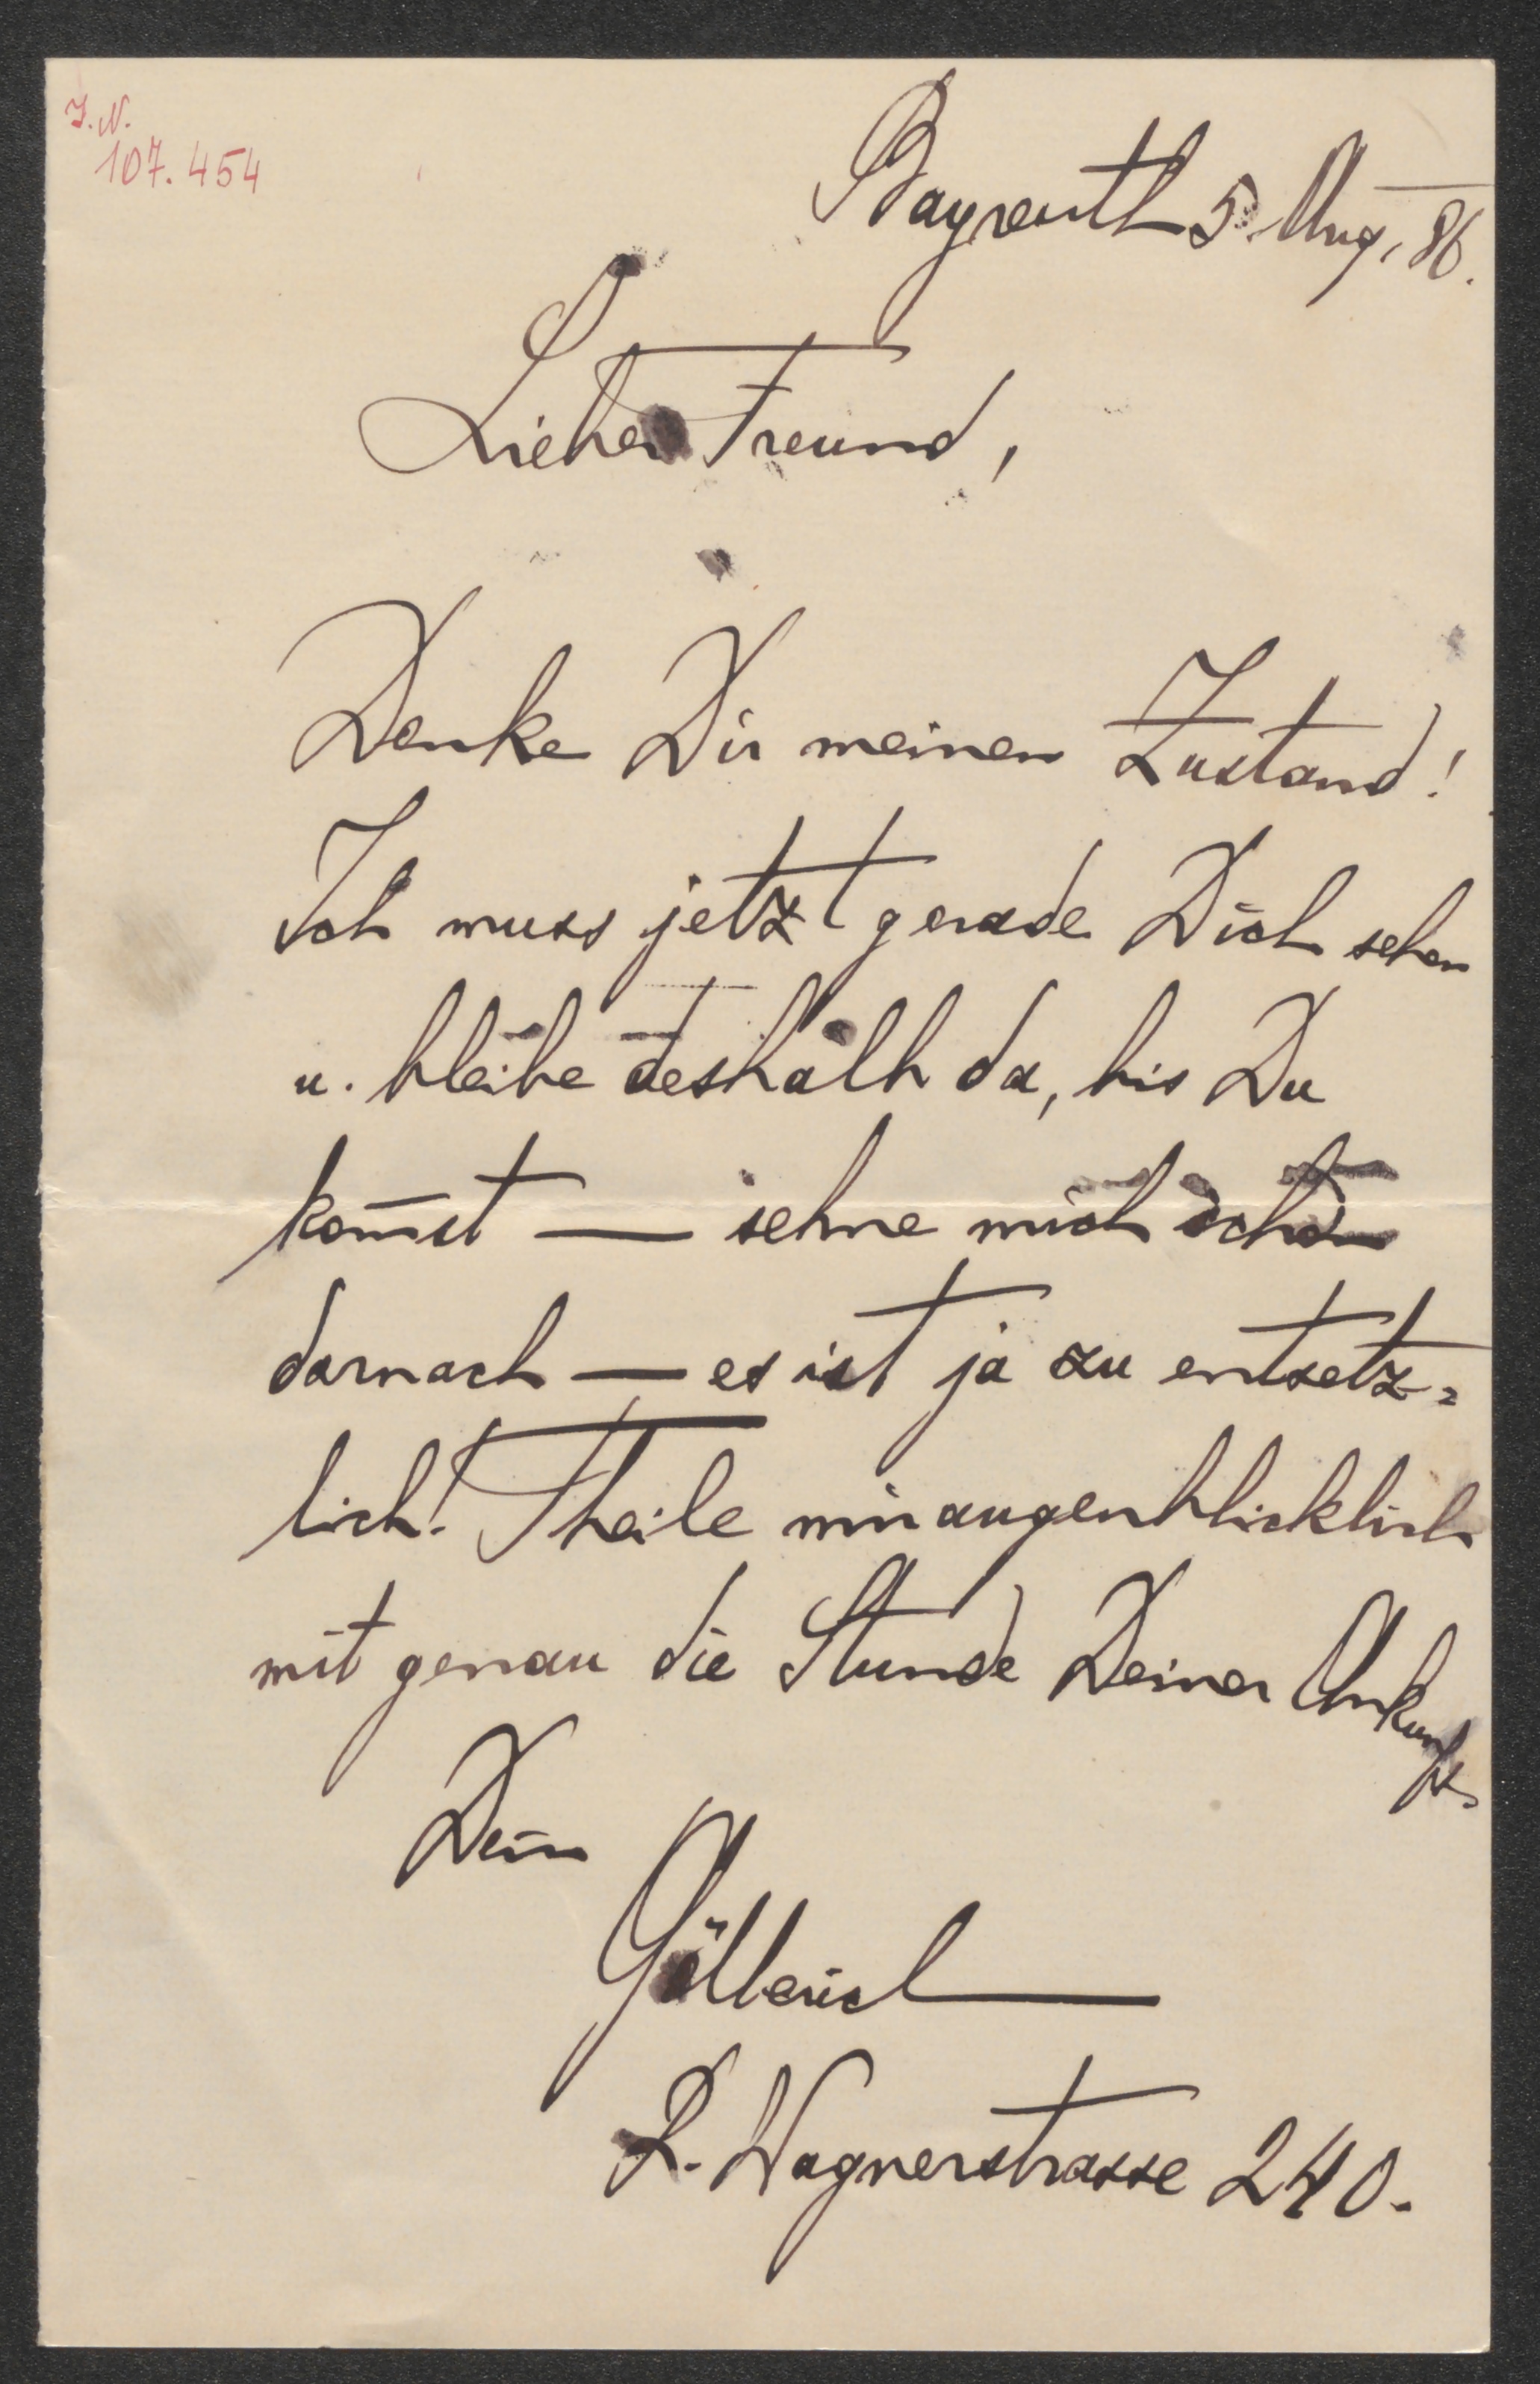 J. N.
107.454
Bayreuth 5. Aug. 86.
Lieber Freund,
Denke Dir meinen Zustand!
Ich muss jetzt gerade Dich sehen
u. bleibe deshalb da, bis Du
kom̅st — sehne mich
darnach — es ist ja zu entsetz=
lich! Theile mir augenblicklich
mit genau die Stunde Deiner Ankunft.
Dein
Göllerich
R. Wagnerstrasse 240.